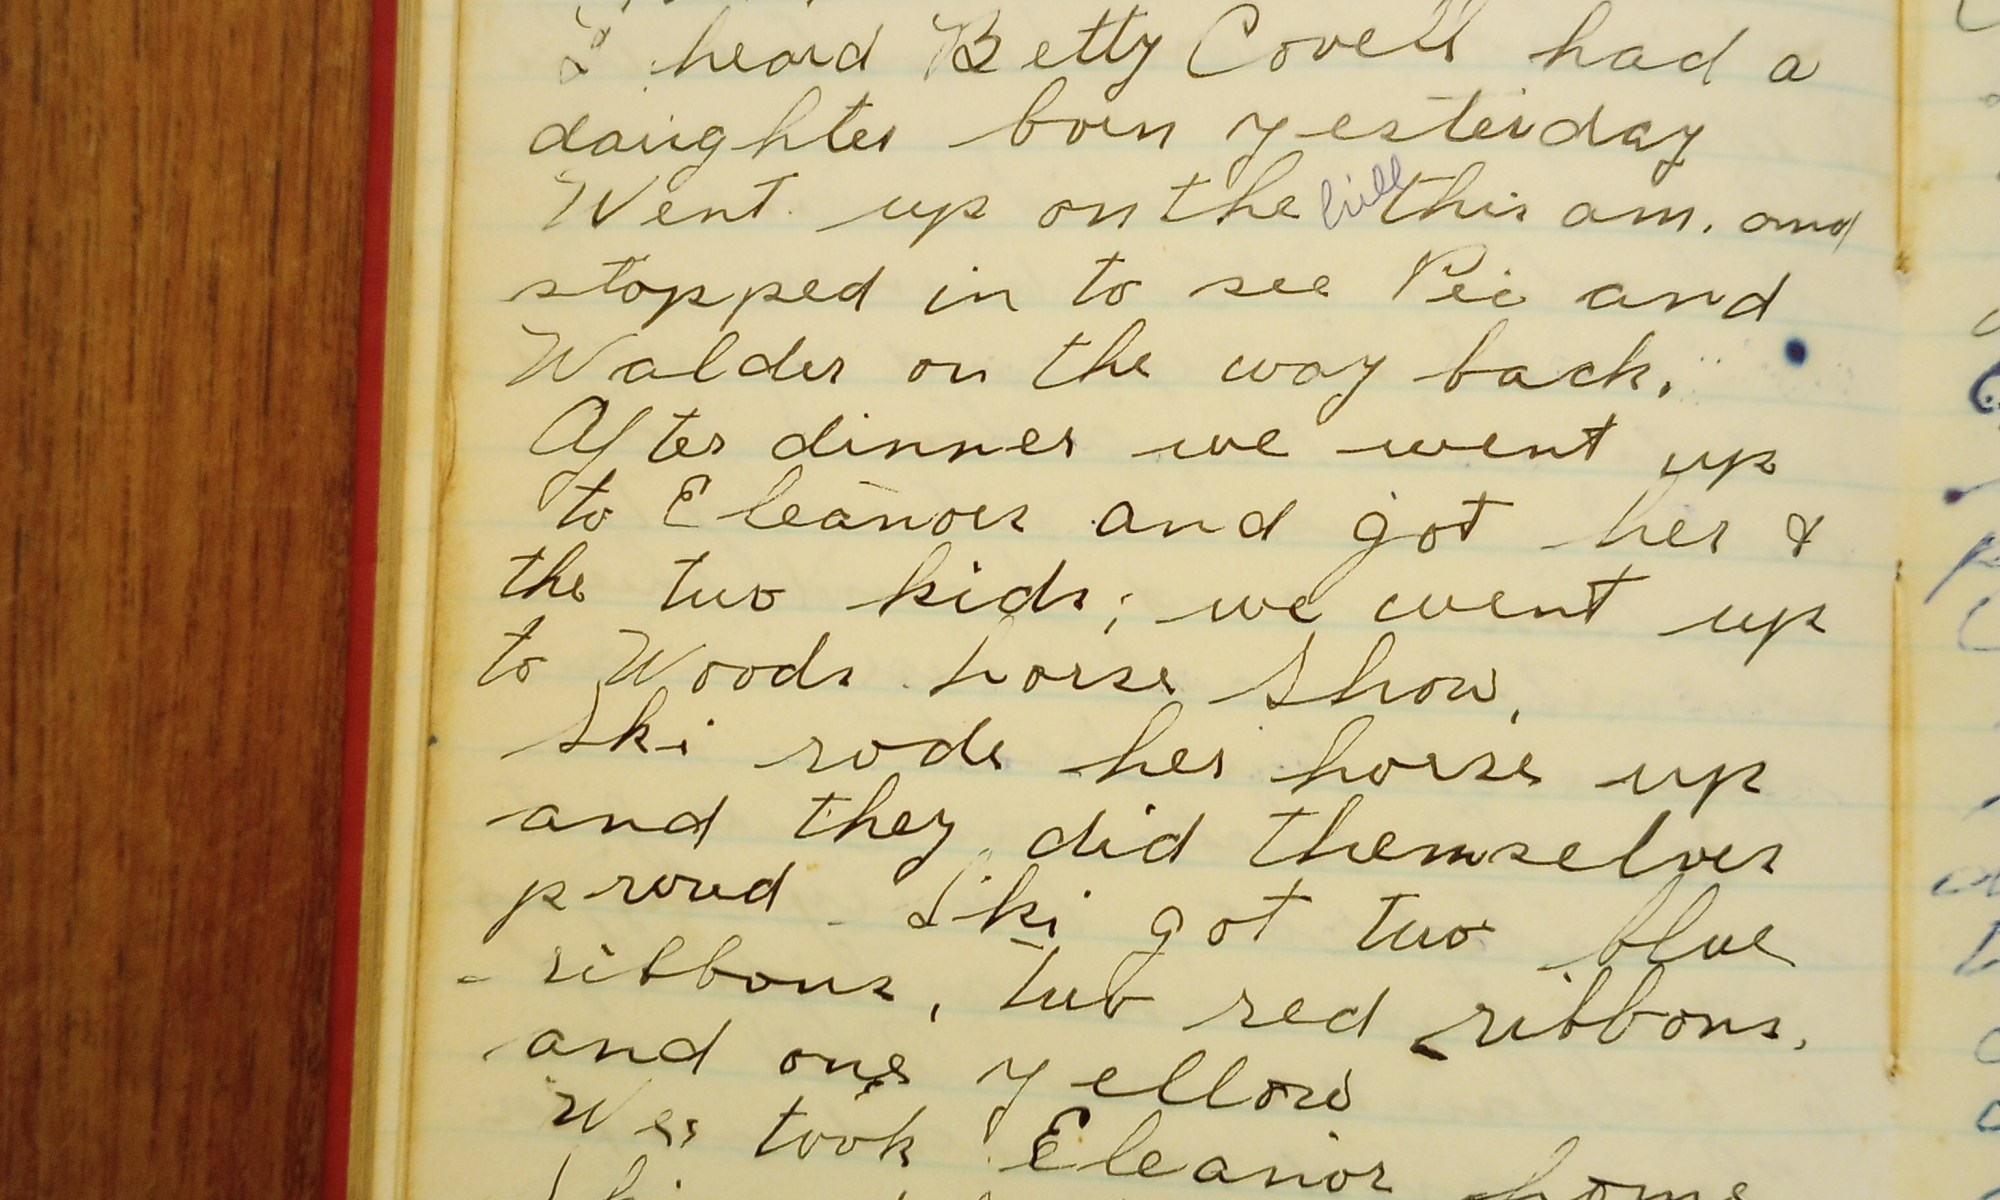 I heard Betty Covell had a
daughter born yesterday
Went up on the hill this am. and
stopped in to see Pei and
Walder on the way back.
After dinner we went up
to Eleanors and got her &
the two kids; we went up
to Woods horse show,
Ski rode her horse up
and they did themselves
proud - Ski got two blue
- ribbons, two red ribbons,
and one yellow
We took Eleanor home